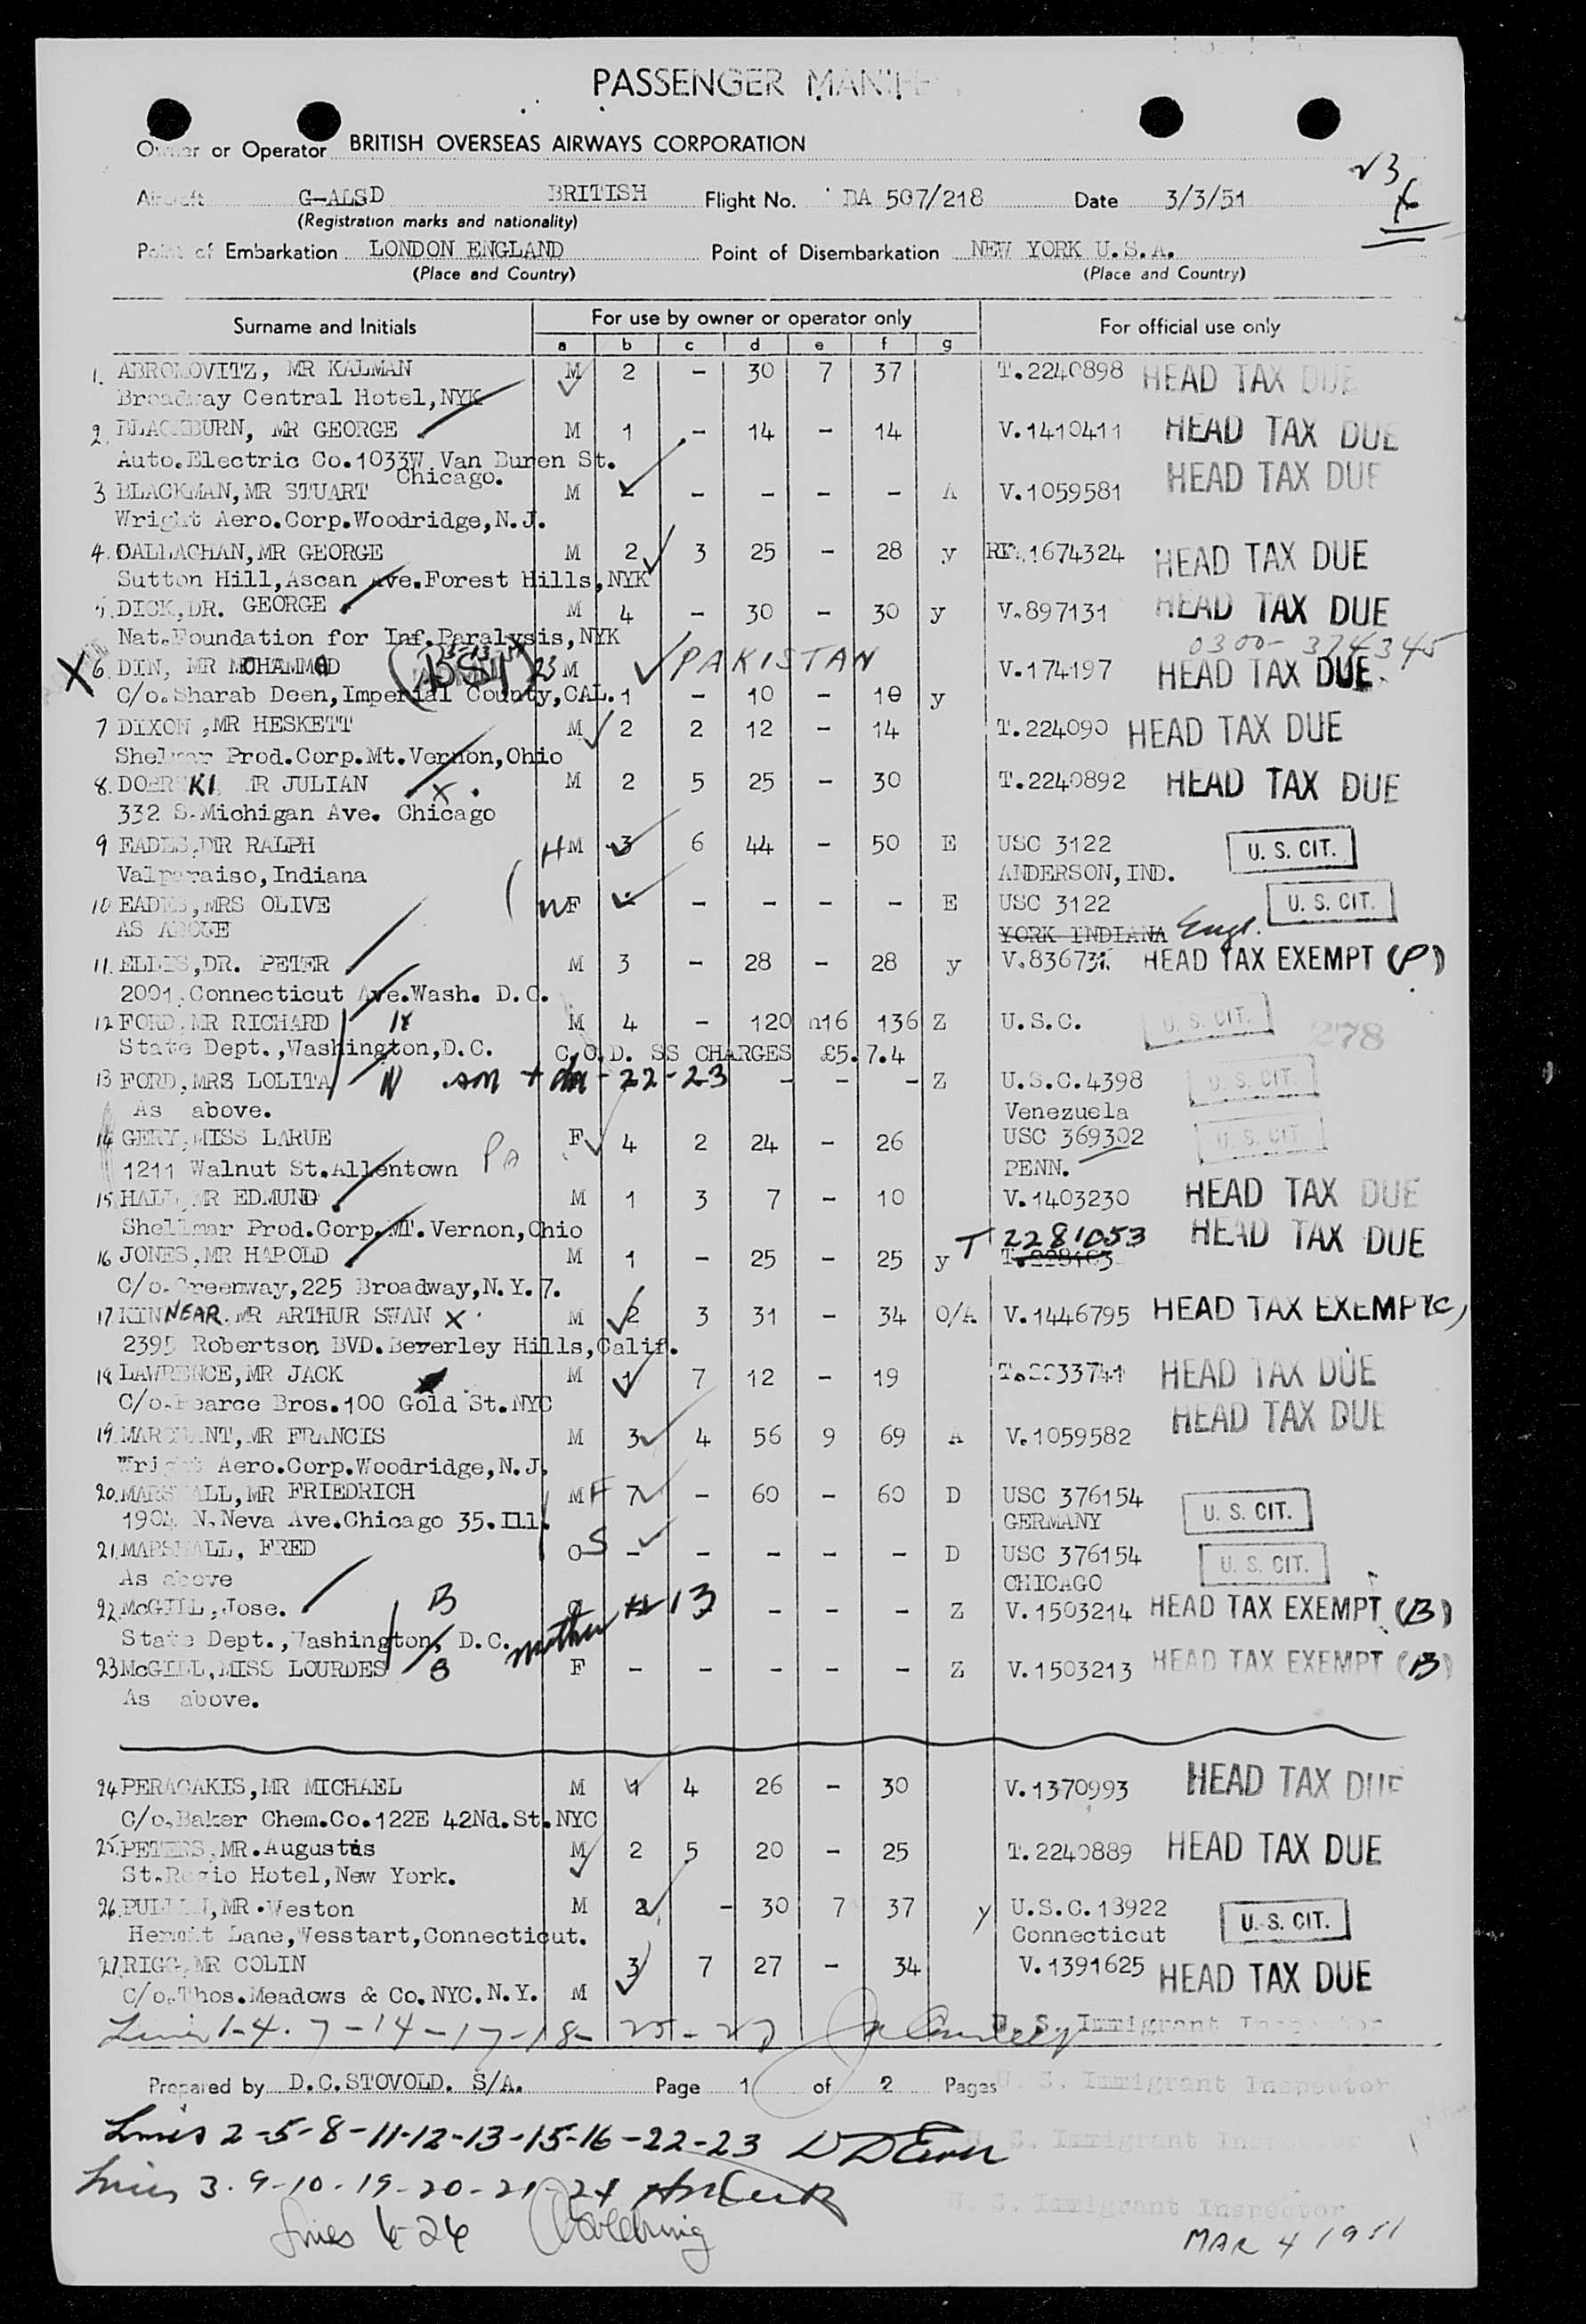 PASSENGER MANIFE
Owner or Operator BRITISH OVERSEAS AIRWAYS CORPORATION
Aircraft G-ALSD BRITISH Flight No. DA 507/218 Date 3/3/51
(Registration marks and nationality)
Point of Embarkation LONDON ENGLAND Point of Disembarkation NEW YORK U.S.A.
(Place and Country) (Place and Country)
Surname and Initials For use by owner or operator only For official use only
a b c d e f g
1. ABROMOVITZ, MR KALMAN M 2 - 30 7 37 T.2240898 HEAD TAX DUE
Broadway Central Hotel,NYK
2. BLACKBURN, MR GEORGE M 1 - 14 - 14 V.1410411 HEAD TAX DUE
Auto.Electric Co.1033W Van Buren St.
Chicago. HEAD TAX DUE
3 BLACKMAN,MR STUART M - - - - - A V.1059581
Wright Aero.Corp.Woodridge,N.J.
4. CALLAGHAN,MR GEORGE M 2 3 25 - 28 y 1674324 HEAD TAX DUE
Sutton Hill,Ascan Ave.Forest Hills,NYK
5. DICK,DR. GEORGE M 4 - 30 - 30 y V.897131 HEAD TAX DUE
Nat.Foundation for Inf.Paralysis,NYK 0300-374345
X 6. DIN, MR MOHAMMAD 23 M PAKISTAN V.174197 HEAD TAX DUE
C/o.Sharab Deen,Imperial County,CAL. 1 - 10 - 10 y
7 DIXON ,MR HESKETT M 2 2 12 - 14 T.224090 HEAD TAX DUE
Shelmar Prod.Corp.Mt.Vernon,Ohio
8. DOBRSKI MR JULIAN X M 2 5 25 - 30 T.2240892 HEAD TAX DUE
332 S.Michigan Ave. Chicago
9 EADES, MR RALPH H M 3 6 44 - 50 E USC 3122 U. S. CIT.
Valparaiso,Indiana ANDERSON,IND.
10 EADES,MRS OLIVE W F - - - - - E USC 3122 U. S. CIT.
AS ABOVE YORK INDIANA Engl.
11. ELLIS,DR. PETER M 3 - 28 - 28 y V.83673 HEAD TAX EXEMPT (P)
2001,Connecticut Ave.Wash. D.C.
12 FORD,MR RICHARD H M 4 - 120 n16 136 Z U.S.C. U. S. CIT. 278
State Dept.,Washington,D.C. C.O.D. SS CHARGES £5.7.4
13 FORD,MRS LOLITA W 22-23 - - - Z U.S.C.4398 U. S. CIT.
As above. Venezuela
14 GERY,MISS LARUE F 4 2 24 - 26 USC 369302 U. S. CIT.
1211 Walnut St.Allentown Pa PENN.
15 HALL MR EDMUND M 1 3 7 - 10 V.1403230 HEAD TAX DUE
Shellmar Prod.Corp.MT.Vernon,Ohio T 2281053 HEAD TAX DUE
16 JONES,MR HAROLD M 1 - 25 - 25 y
C/o.Greenway,225 Broadway,N.Y.7.
17. KINNEAR,MR ARTHUR SWAN X M 2 3 31 - 34 O/A V.1446795 HEAD TAX EXEMPT (C)
2395 Robertson BVD.Beverley Hills,Calif.
18 LAWRENCE,MR JACK M 1 7 12 - 19 T.2233741 HEAD TAX DUE
C/o.Pearce Bros.100 Gold St.NYC HEAD TAX DUE
19 MARCHANT,MR FRANCIS M 3 4 56 9 69 A V.1059582
Wright Aero.Corp.Woodridge,N.J.
20. MARSHALL,MR FRIEDRICH M F 7 - 60 - 60 D USC 376154 U. S. CIT.
1904 N.Neva Ave.Chicago 35.Ill. GERMANY
21. MARSHALL, FRED O S - - - - - D USC 376154 U. S. CIT.
As above CHICAGO
22 McGILL,Jose. B mother # 13 - - - Z V.1503214 HEAD TAX EXEMPT (B)
State Dept.,Washington, D.C.
23 McGILL,MISS LOURDES B F - - - - - Z V.1503213 HEAD TAX EXEMPT (B)
As above.
24 PERACAKIS,MR MICHAEL M 1 4 26 - 30 V.1370993 HEAD TAX DUE
C/o.Baker Chem.Co.122E 42Nd.St.NYC
25. PETERS,MR.Augustus M 2 5 20 - 25 T.2240889 HEAD TAX DUE
St.Regio Hotel,New York.
26. MR.Weston M 2 - 30 7 37 y U.S.C.18922 U. S. CIT.
Hermit Lane,Wesstart,Connecticut. Connecticut
27. RIGG,MR COLIN 3 7 27 - 34 V.1391625 HEAD TAX DUE
C/o.Thos.Meadows & Co.NYC.N.Y. M
Lines 1-4. 7-14-17-18- 25-27 U. S. Immigrant Inspector
Prepared by D.C.STOVOLD. S/A. Page 1 of 2 Pages U. S. Immigrant Inspector
Lines 2-5-8-11-12-13-15-16-22-23 U. S. Immigrant Inspector
Lines 3.9-10-19-20-21-24
U. S. Immigrant Inspector
Lines 6-26
MAR 4 1951